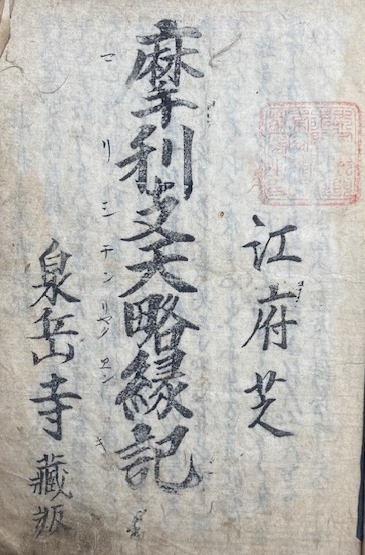 江府芝
摩利支天略縁記
マリシテンリヤクエンキ
泉岳寺藏版